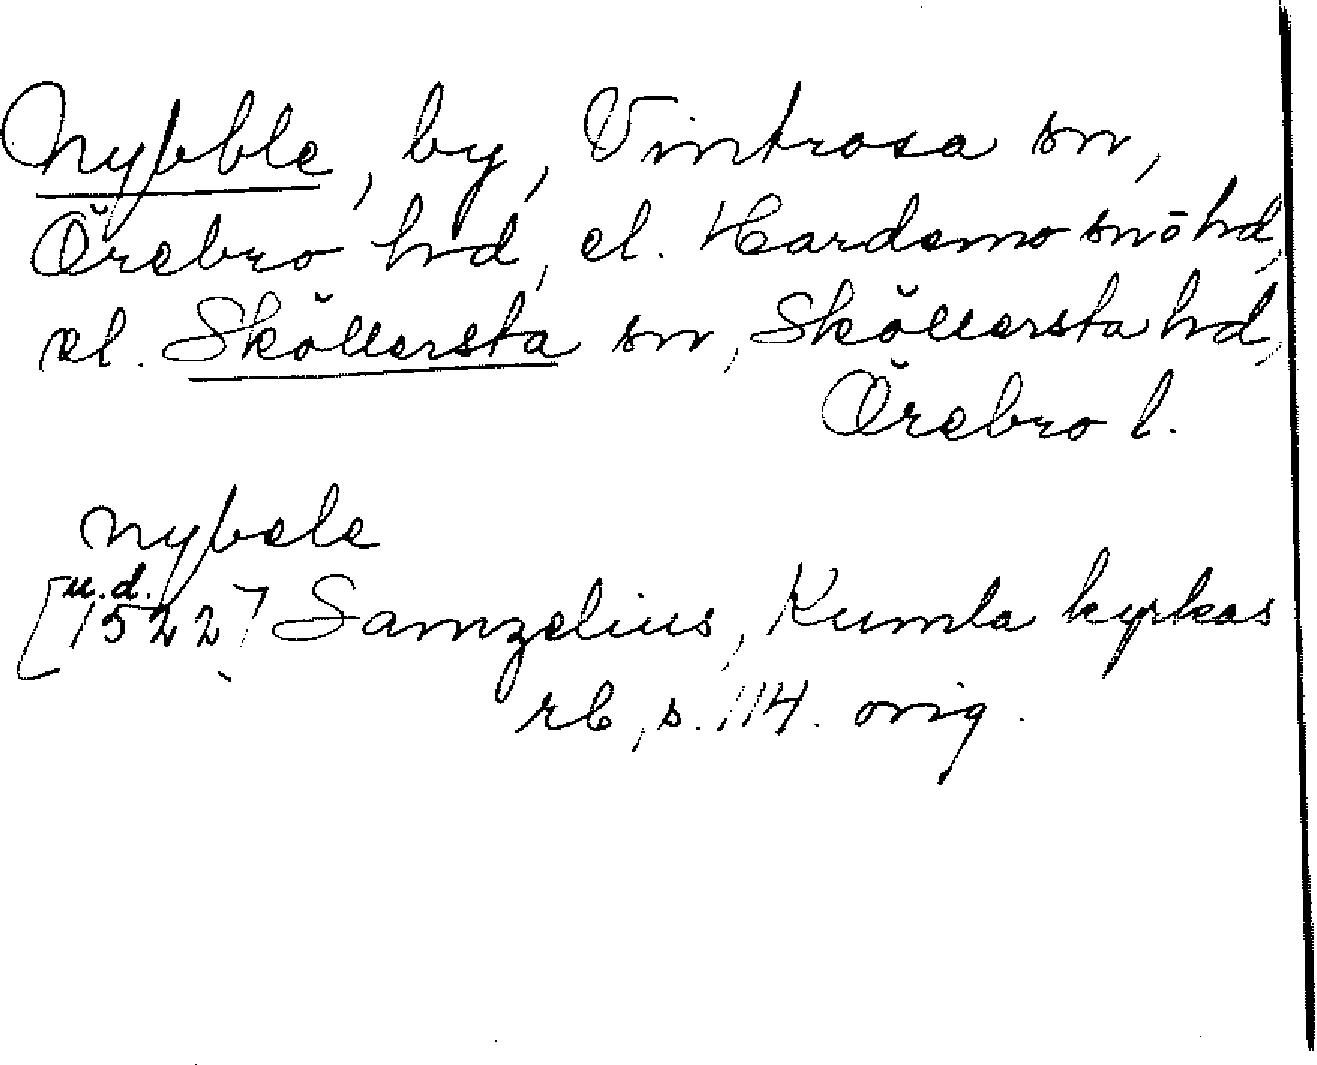 Nybble, by, Vintrosa sn,
Örebro hd, el. Hardemo sn o hd,
el. Sköllersta sn, Sköllersta hd,
Örebro l.
Nybele
[u.d.
1522] Samzelius, Kumla kyrkas
rb, s. 114. orig.